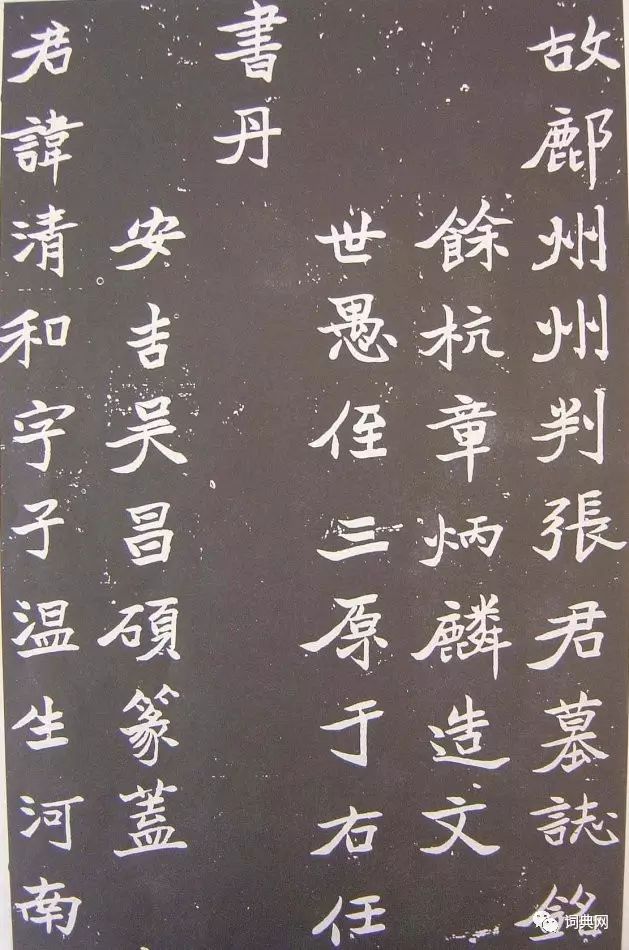 故鄜州州判張君墓誌銘
餘杭章炳麟造文
世愚侄三原于右任
書丹
安吉吴昌碩篆蓋
君諱清和字子温生河南
词典网